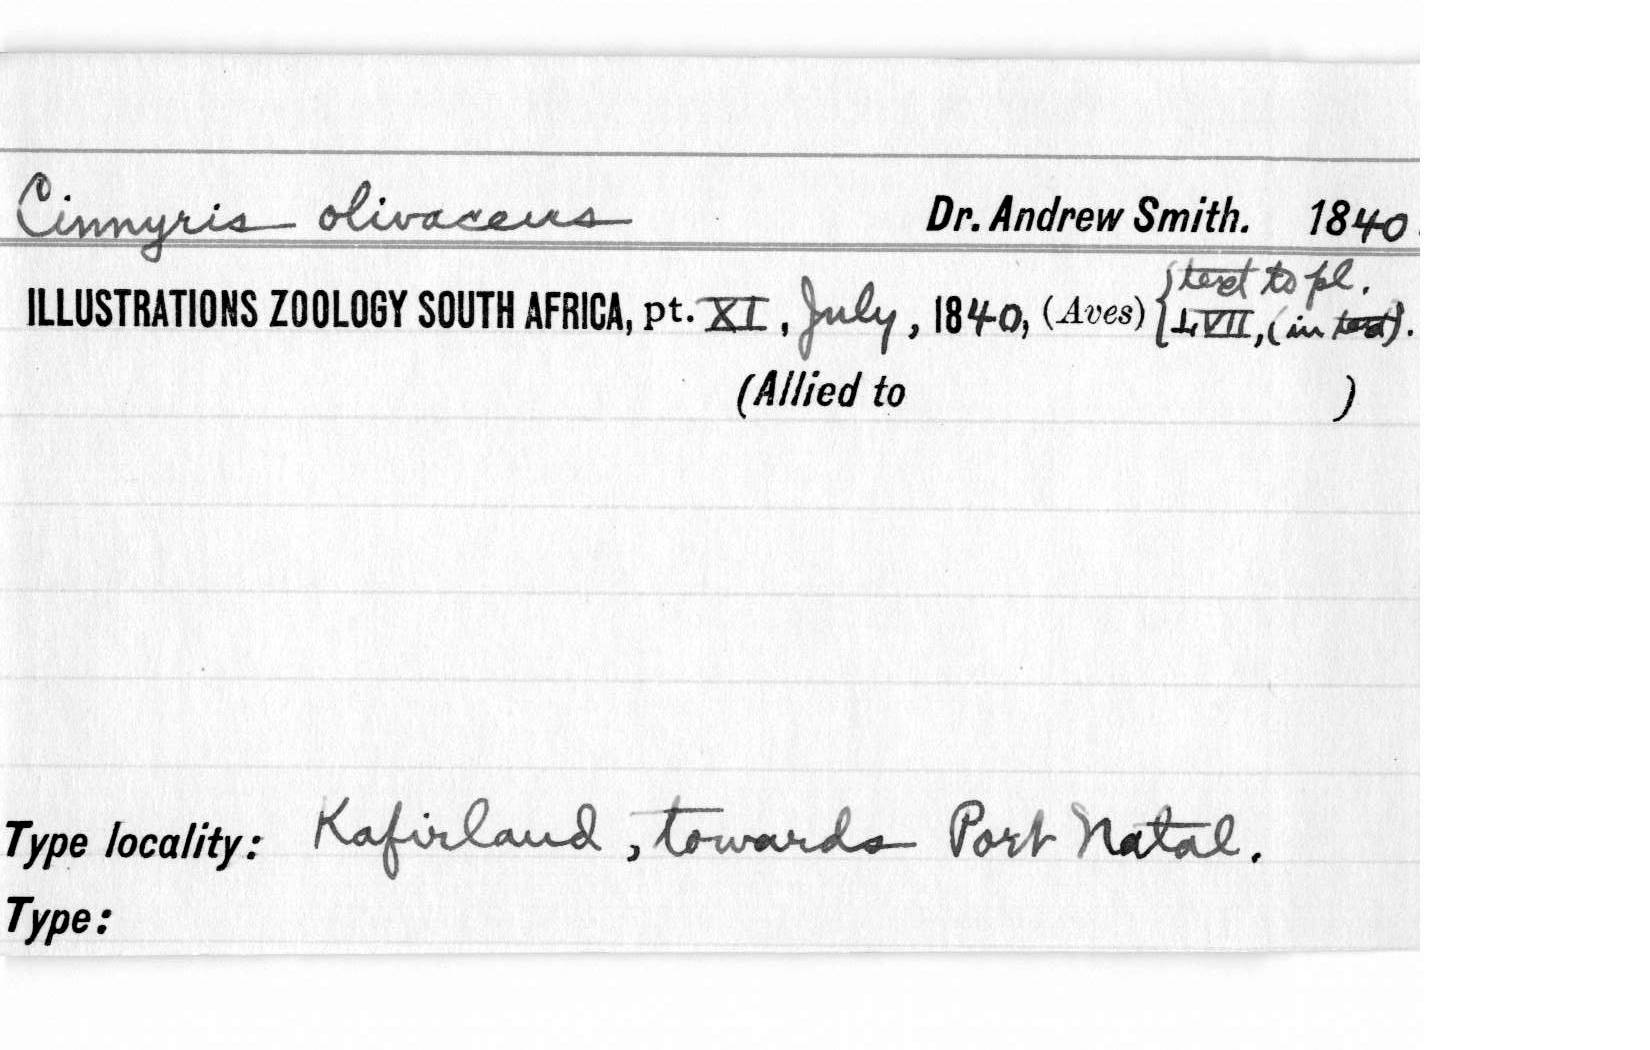 Cinnyris olivaceus Dr. Andrew Smith. 1840.
ILLUSTRATIONS ZOOLOGY SOUTH AFRICA, pt. XI, July, 1840, (Aves) { text to pl. LVII, (in text).
(Allied to )
Type locality: Kafirland, towards Port Natal.
Type: